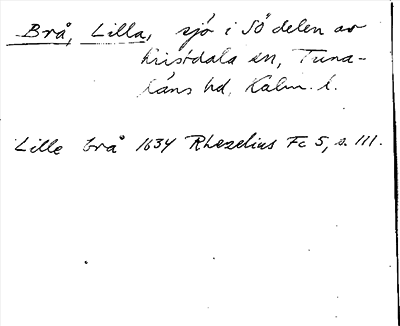 Brå, Lilla, sjö i SÖ delen av
Kristdala sn, Tuna-
läns hd, Kalm. l.
Lille brå 1634 Rhezelius Fc 5, s. 111.